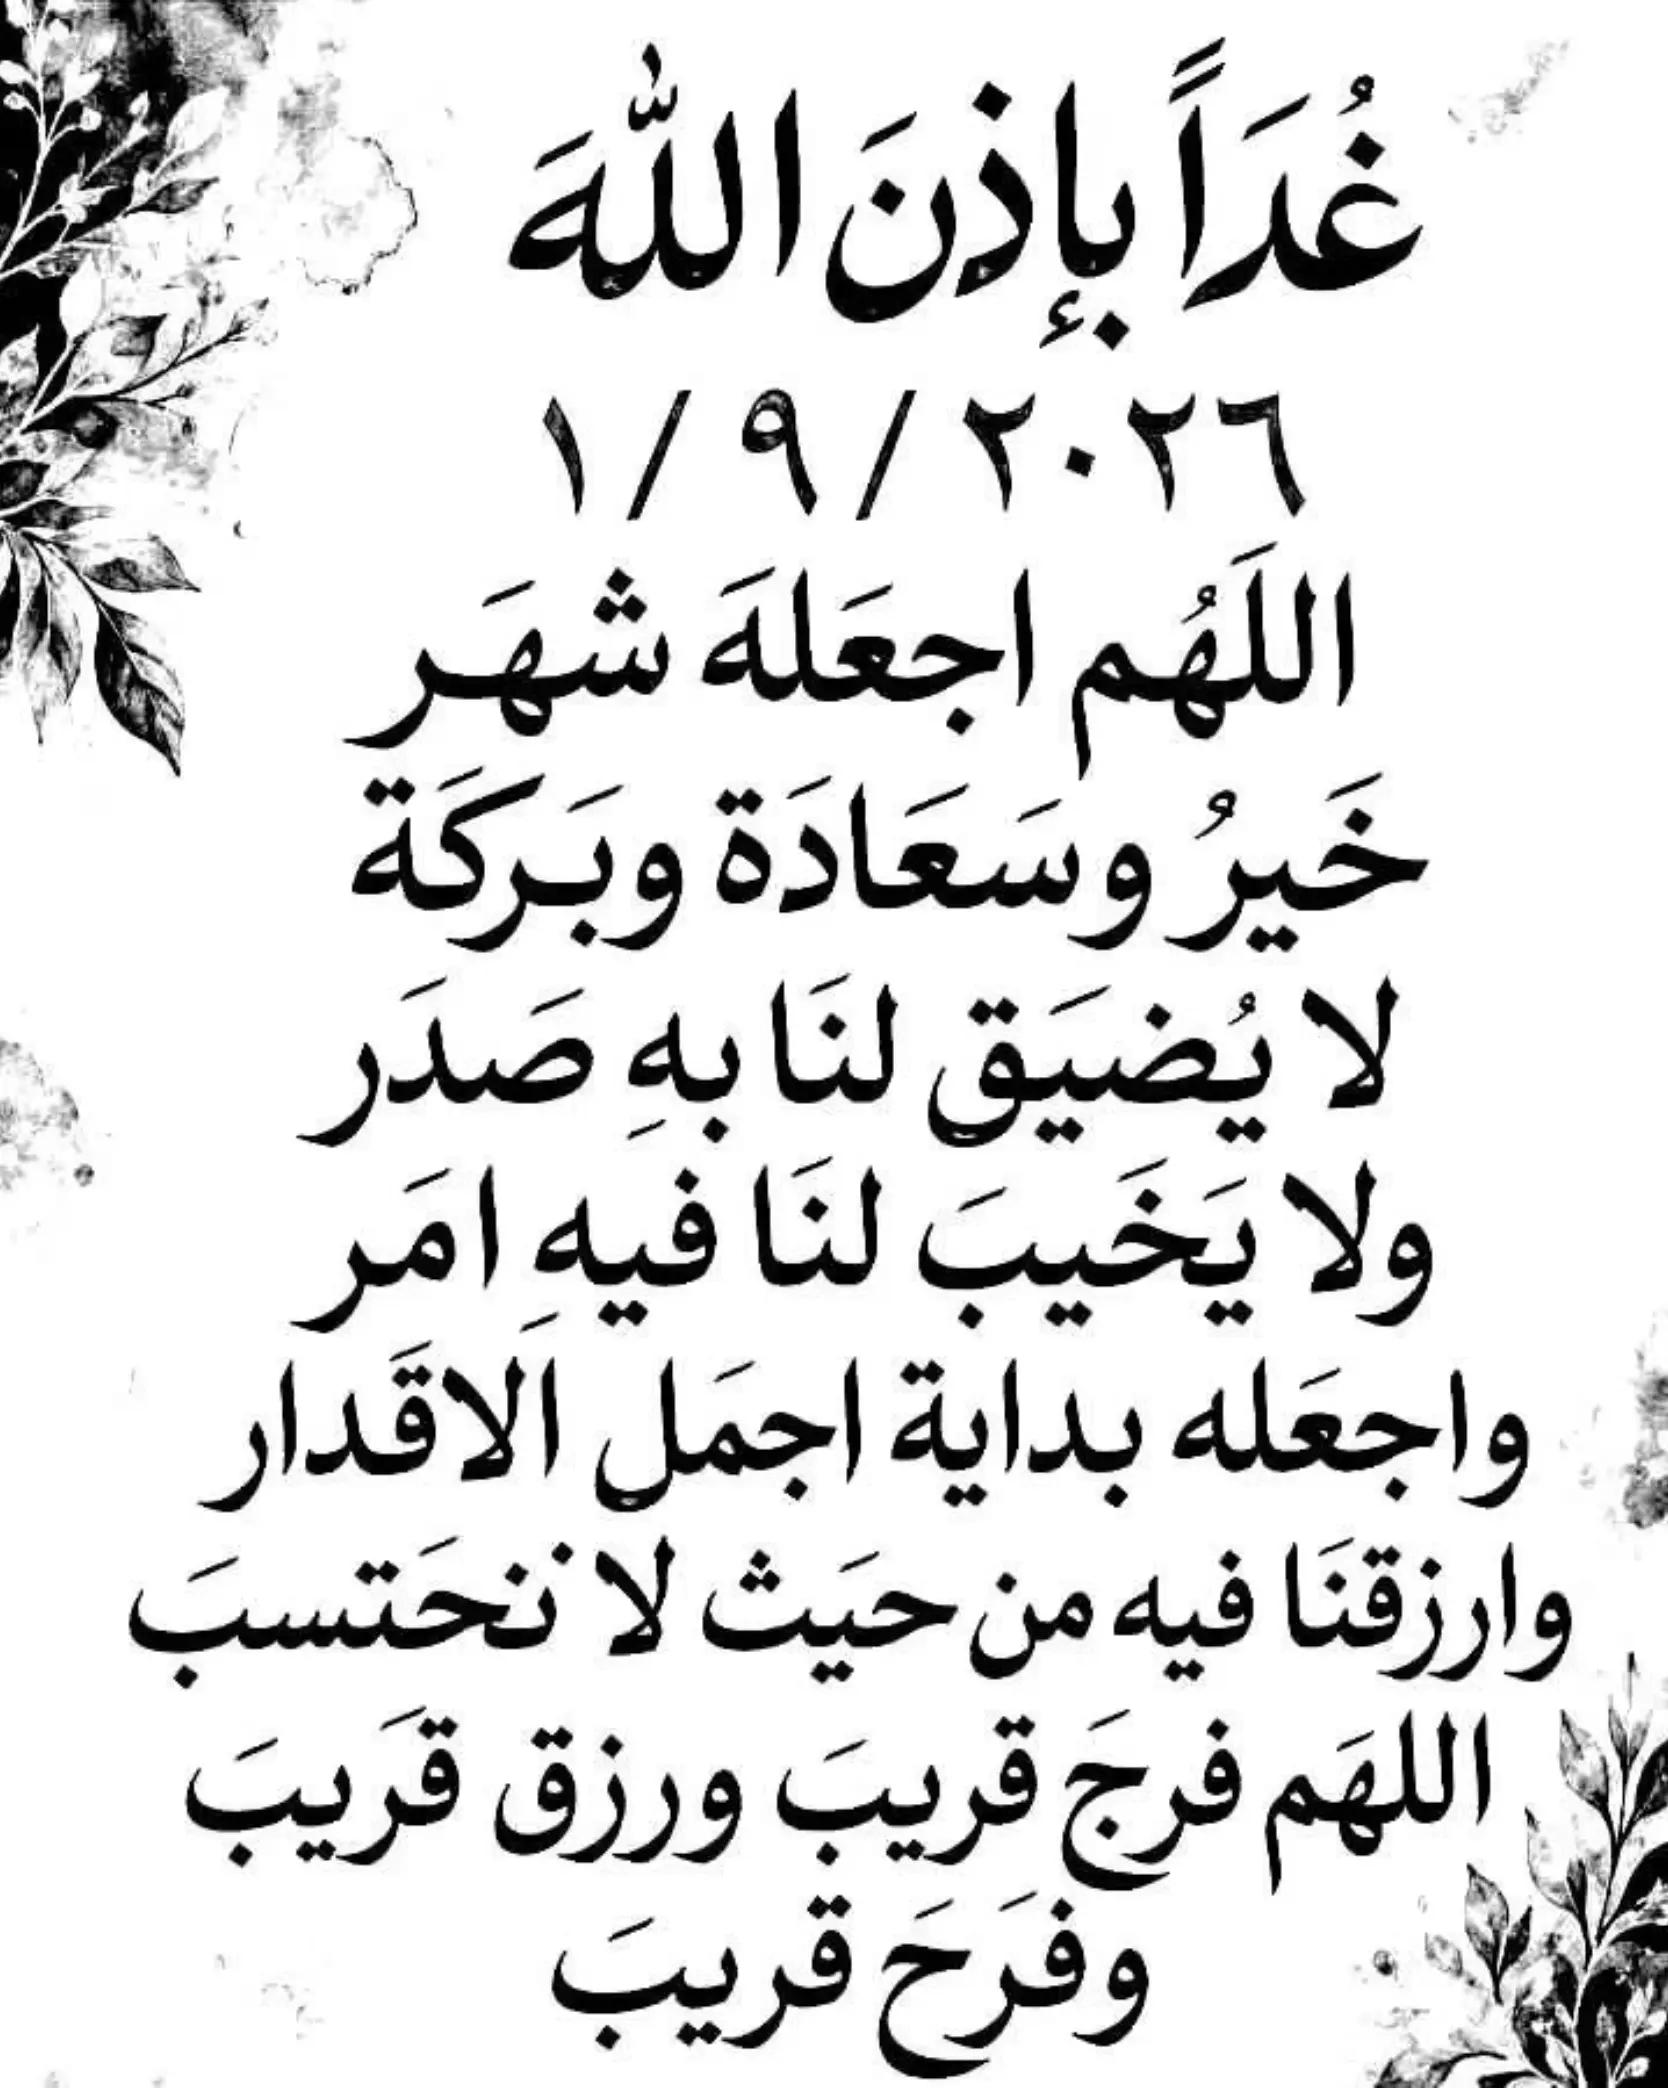 غُدَاً بإذنَ اللهَ
١ / ٩ / ٢٠٢٦
اللَهُم اجعَلهَ شهَر
خَيرُ وسَعَادَة وبَركَة
لا يُضيَق لنَا بهِ صَدَر
ولا يَخَيبَ لنَا فيهِ امَر
واجعَله بداية اجمَل الاقَدار
وارزقنَا فيه من حيَث لا نحَتسبَ
اللهَم فرجَ قريبَ ورزق قَريبَ
وفَرَحَ قريبَ